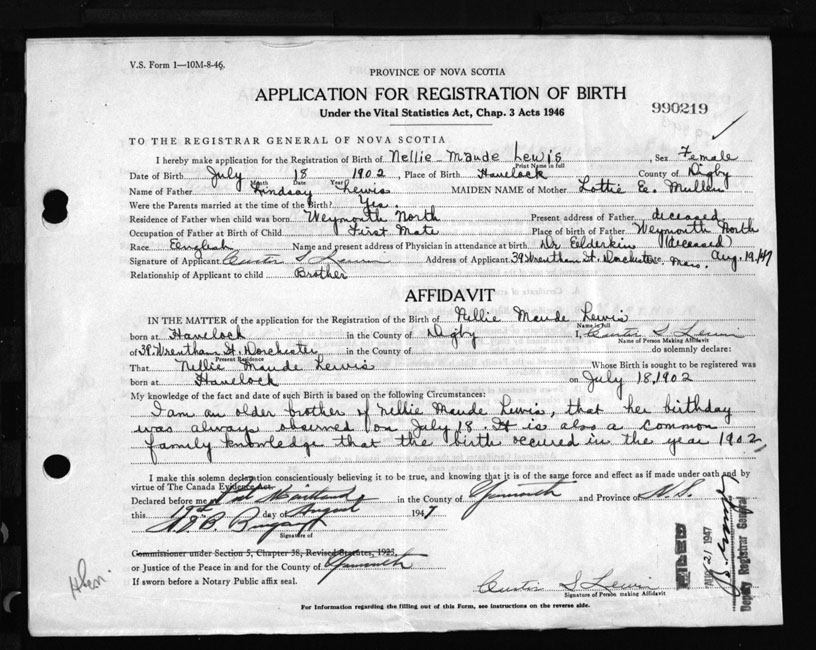 V.S. Form 1—10M-8-46.
PROVINCE OF NOVA SCOTIA
APPLICATION FOR REGISTRATION OF BIRTH
Under the Vital Statistics Act, Chap. 3 Acts 1946
990219
TO THE REGISTRAR GENERAL OF NOVA SCOTIA
I hereby make application for the Registration of Birth of Nellie Maude Lewis, Sex Female
Print Name in full
Date of Birth July 18 1902, Place of Birth Havelock County of Digby
Month Date Year
Name of Father Lindsay Lewis MAIDEN NAME of Mother Lottie E. Mullen
Were the Parents married at the time of the Birth? Yes.
Residence of Father when child was born Weymouth North Present address of Father deceased
Occupation of Father at Birth of Child First Mate Place of birth of Father Weymouth North
Race English Name and present address of Physician in attendance at birth Dr Elderkin (deceased)
Signature of Applicant Curtis S Lewis Address of Applicant 39 Wrentham St. Dorchester, Mass. Aug. 19/47
Relationship of Applicant to child Brother
AFFIDAVIT
IN THE MATTER of the application for the Registration of the Birth of Nellie Maude Lewis
Name in full
born at Havelock in the County of Digby I, Curtis S. Lewis
Name of Person Making Affidavit
of 39 Wrentham St. Dorchester in the County of do solemnly declare:
Present Residence
That Nellie Maude Lewis Whose Birth is sought to be registered was
born at Havelock on July 18, 1902
My knowledge of the fact and date of such Birth is based on the following Circumstances:
I am an older brother of Nellie Maude Lewis, that her birthday
was always observed on July 18. It is also a common
family knowledge that the birth occured in the year 1902,
I make this solemn declaration conscientiously believing it to be true, and knowing that it is of the same force and effect as if made under oath and by
virtue of The Canada Evidence Act.
Declared before me at Maitland in the County of Yarmouth and Province of N.S.
this 19th day of August 1947
Signature of
Commissioner under Section 5, Chapter 38, Revised Statutes, 1923,
or Justice of the Peace in and for the County of Yarmouth
If sworn before a Notary Public affix seal.
Curtis S Lewis
Signature of Person making Affidavit
AUG 21 1947
Deputy Registrar General
For Information regarding the filling out of this Form, see instructions on the reverse side.